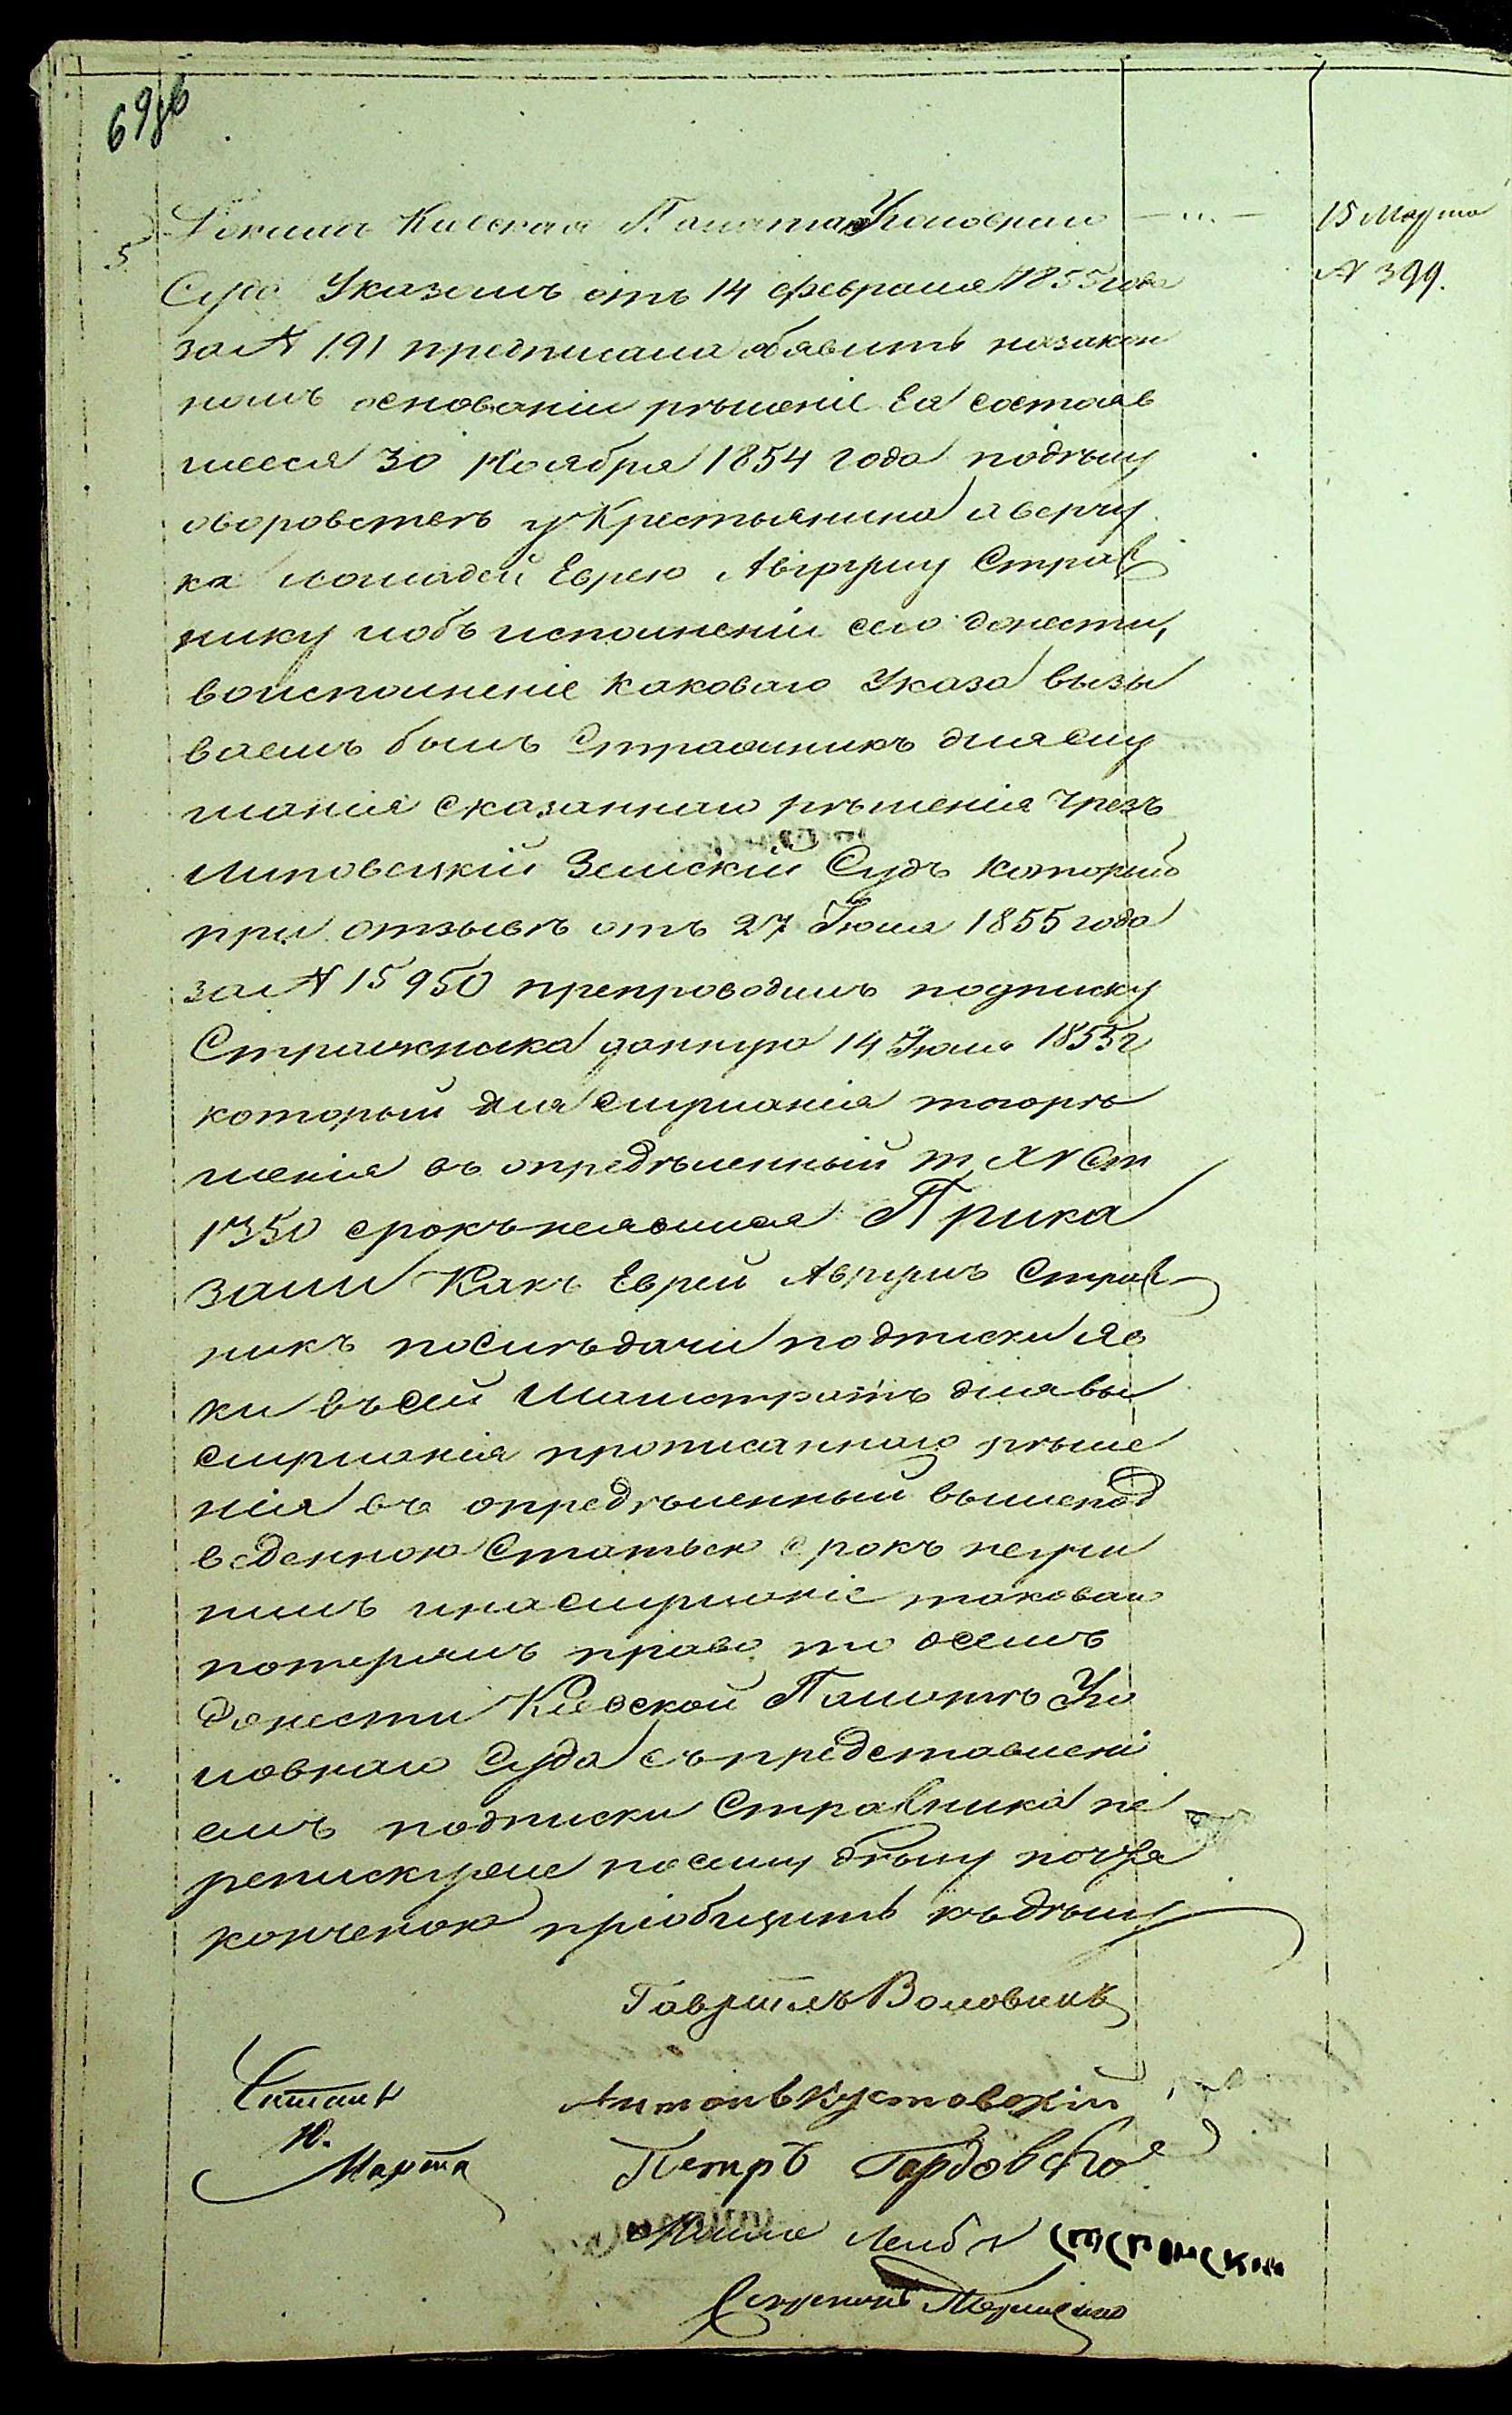 69об
5 Докладъ Киевская Палата Уголовнаго — „ — 15 Марта
Суда Указомъ отъ 14 февраля 1855 года № 399.
за № 191 предписала объявить назакон
номъ основаніи рѣшеніе Ея состояв
шееся 30 Ноября 1854 года подѣлу
оворовствѣ у Крестьянина Аверчу
ка лошадей Еврею Авруму Страв
нику иобъ исполненіи сего донести,
воисполненіе каковаго Указа вызы
ваемъ былъ Стравникъ дляслу
шанія сказаннаго рѣшенія чрезъ
Липовецкій Земскій Судъ который
при отзывѣ отъ 27 Іюля 1855 года
за № 15950 препроводилъ подписку
Стравника данную 14 Іюля 1855 г
который для слушанія тогорѣ
шенія въ опредѣленный т. XV Ст
1350 срокъ неявился Прика
зали Какъ Еврей Аврумъ Страв
никъ послѣдачи подписки яв
ки въсей Магистратъ длявы
слушанія прописаннаго рѣше
нія въ опредѣленный вышепод
веденною Статьею срокъ неири
нилъ инаслушаніе таковаго
потерялъ право то осемъ
донести Киевской Палатѣ Уго
ловнаго Суда съпредставлені
емъ подписки Стравника пе
реписку поsему дѣлу
конченою пріобщить къдѣлу
Гавріилъ Воловикъ
Читалъ Антонъ Кустовскій
10. Петръ Гордовскій
Марта Лейба
Секретарь